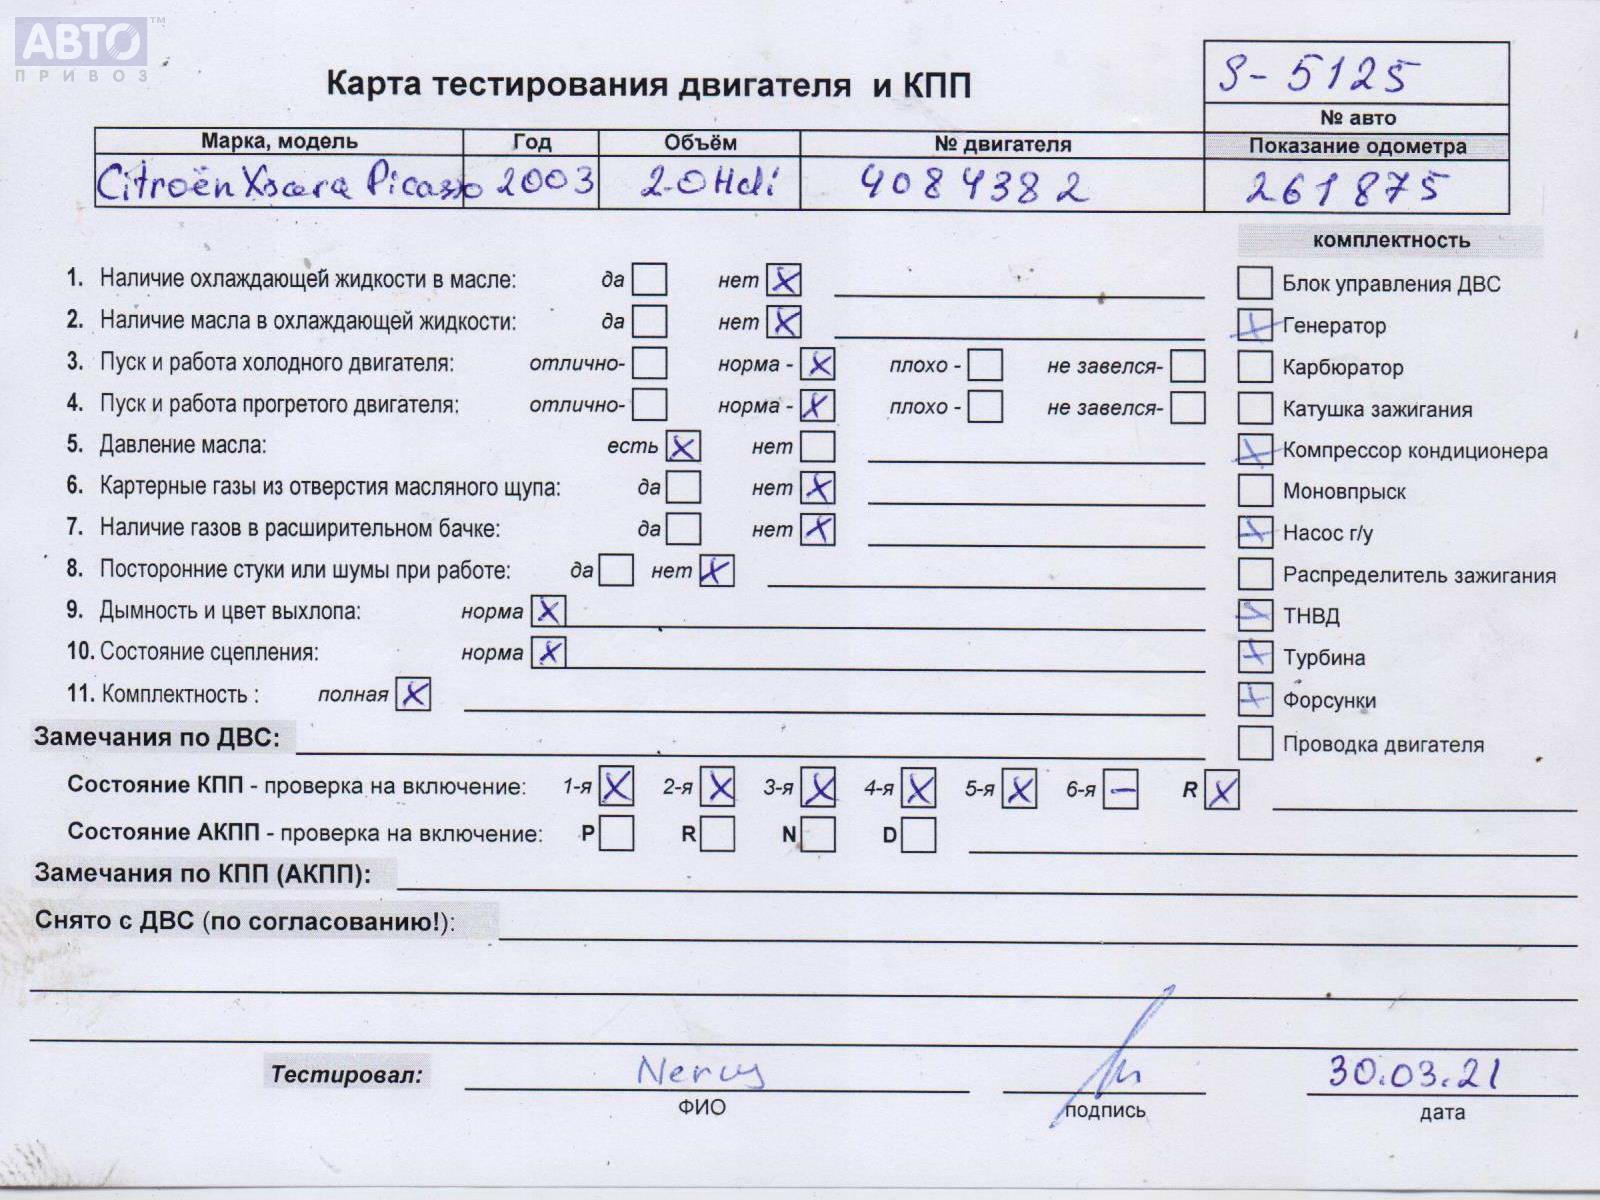 АВТО™
ПРИВОЗ
Карта тестирования двигателя и КПП
S-5125
№ авто
Марка, модель Год Объём № двигателя Показание одометра
Citroën Xsara Picasso 2003 2.0 Hdi 4084382 261875
комплектность
1. Наличие охлаждающей жидкости в масле: да нет X
Блок управления ДВС
2. Наличие масла в охлаждающей жидкости: да нет X
X Генератор
3. Пуск и работа холодного двигателя: отлично- норма - X плохо - не завелся-
Карбюратор
4. Пуск и работа прогретого двигателя: отлично- норма - X плохо - не завелся-
Катушка зажигания
5. Давление масла: есть X нет
X Компрессор кондиционера
6. Картерные газы из отверстия масляного щупа: да нет X
Моновпрыск
7. Наличие газов в расширительном бачке: да нет X
X Насос г/у
8. Посторонние стуки или шумы при работе: да нет X
Распределитель зажигания
9. Дымность и цвет выхлопа: норма X
X ТНВД
10. Состояние сцепления: норма X
X Турбина
11. Комплектность : полная X
X Форсунки
Замечания по ДВС:
Проводка двигателя
Состояние КПП - проверка на включение: 1-я X 2-я X 3-я X 4-я X 5-я X 6-я — R X
Состояние АКПП - проверка на включение: P R N D
Замечания по КПП (АКПП):
Снято с ДВС (по согласованию!):
Тестировал: 30.03.21
ФИО подпись дата